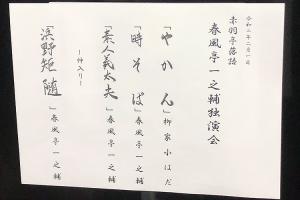 令和二年二月一日
赤羽亭落語
春風亭一之輔独演会
「やかん」柳家小はだ
「時そば」春風亭一之輔
「素人義太夫」春風亭一之輔
ー仲入りー
「浜野矩随」春風亭一之輔